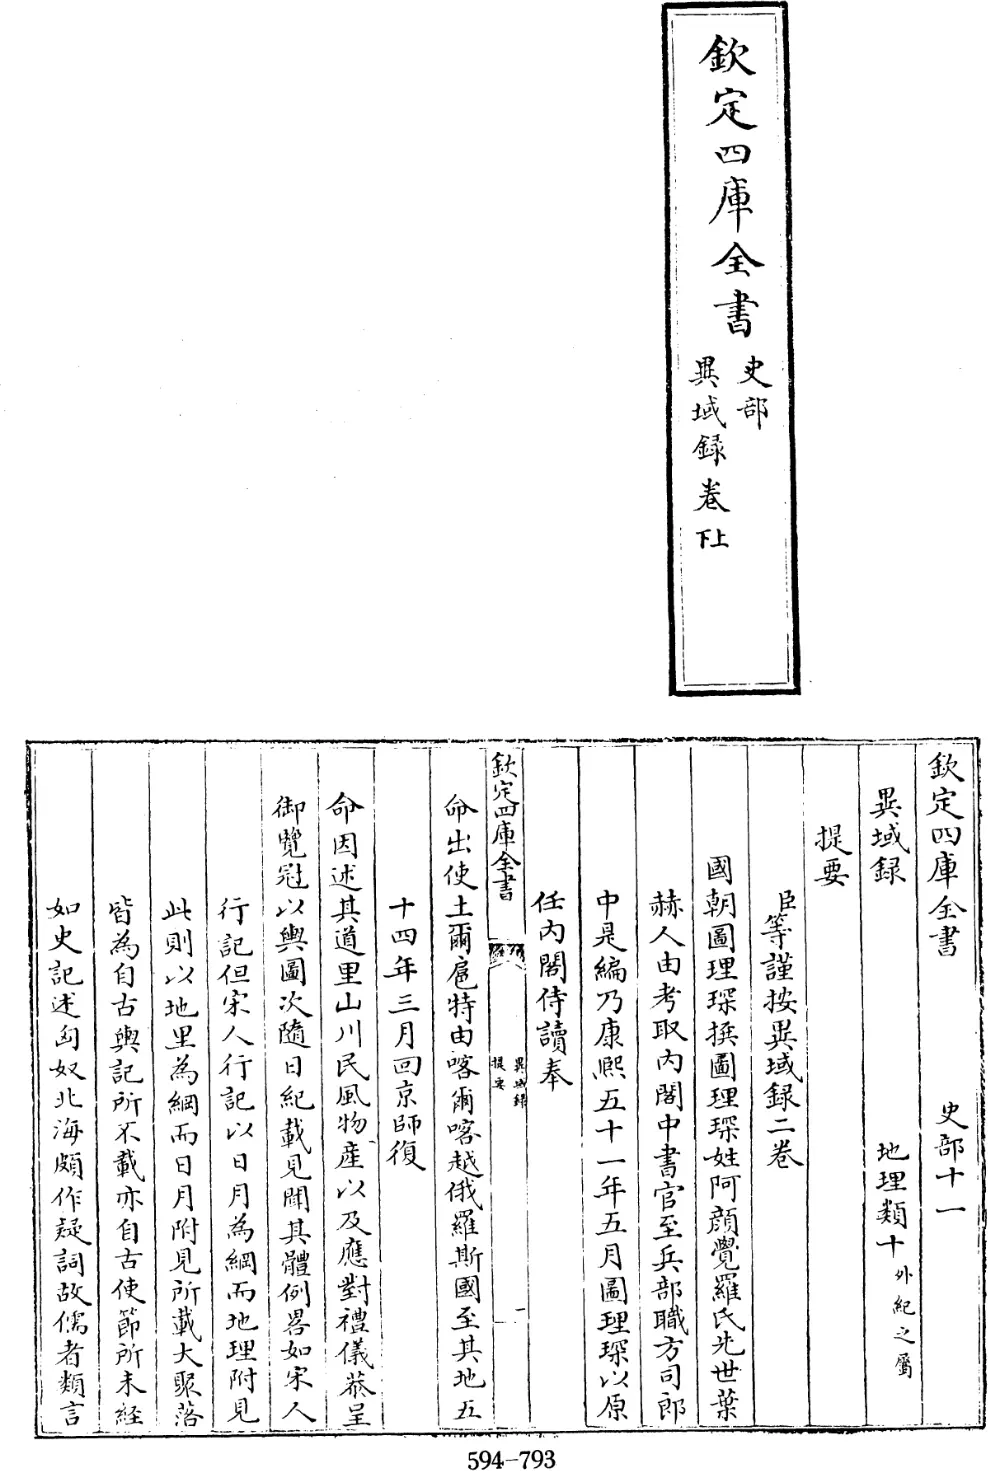 欽定四庫全書
史部
異域録卷上下
欽定四庫全書 史部十一
異域録 地理類十外紀之屬
提要
臣等謹按異域録二卷
國朝圖理琛撰圖理琛姓阿顔覺羅氏先世葉
赫人由考取内閣中書官至兵部職方司郎
中是編乃康熙五十一年五月圖理琛以原
任内閣侍讀奉
欽定四庫全書
異域録
提要
一
命出使土爾扈特由喀爾喀越俄羅斯國至其地五
十四年三月回京師復
命因述其道里山川民風物産以及應對禮儀恭呈
御覽冠以輿圖次隨日紀載見聞其體例畧如宋人
行記但宋人行記以日月為綱而地理附見
此則以地里為綱而日月附見所載大聚落
皆為自古輿記所不載亦自古使節所未經
如史記述匈奴北海頗作疑詞故儒者類言
594-793